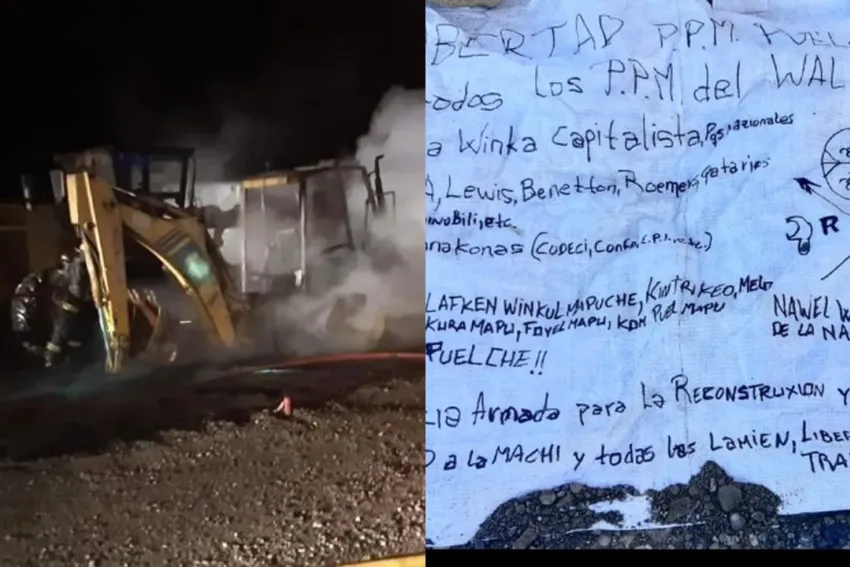 BERTAD P.P.M. PUEL
todos los P.P.M del WAL
a Winka Capitalista,
A, Lewis, Benetton, Roemers,
etc.
anakonas (CODECI, Confa, L.P.I., etc.)
R
LAFKEN WINKUL MAPUCHE, KINTRIKEO, MELO
KURA MAPU, FOYEL MAPU, KOM PUEL MAPU
NAWEL W
DE LA NA
PUELCHE!!
CIA Armada para la RECONSTRUXION y
O a la MACHI y todas las LAMIEN, LIBER
TRA